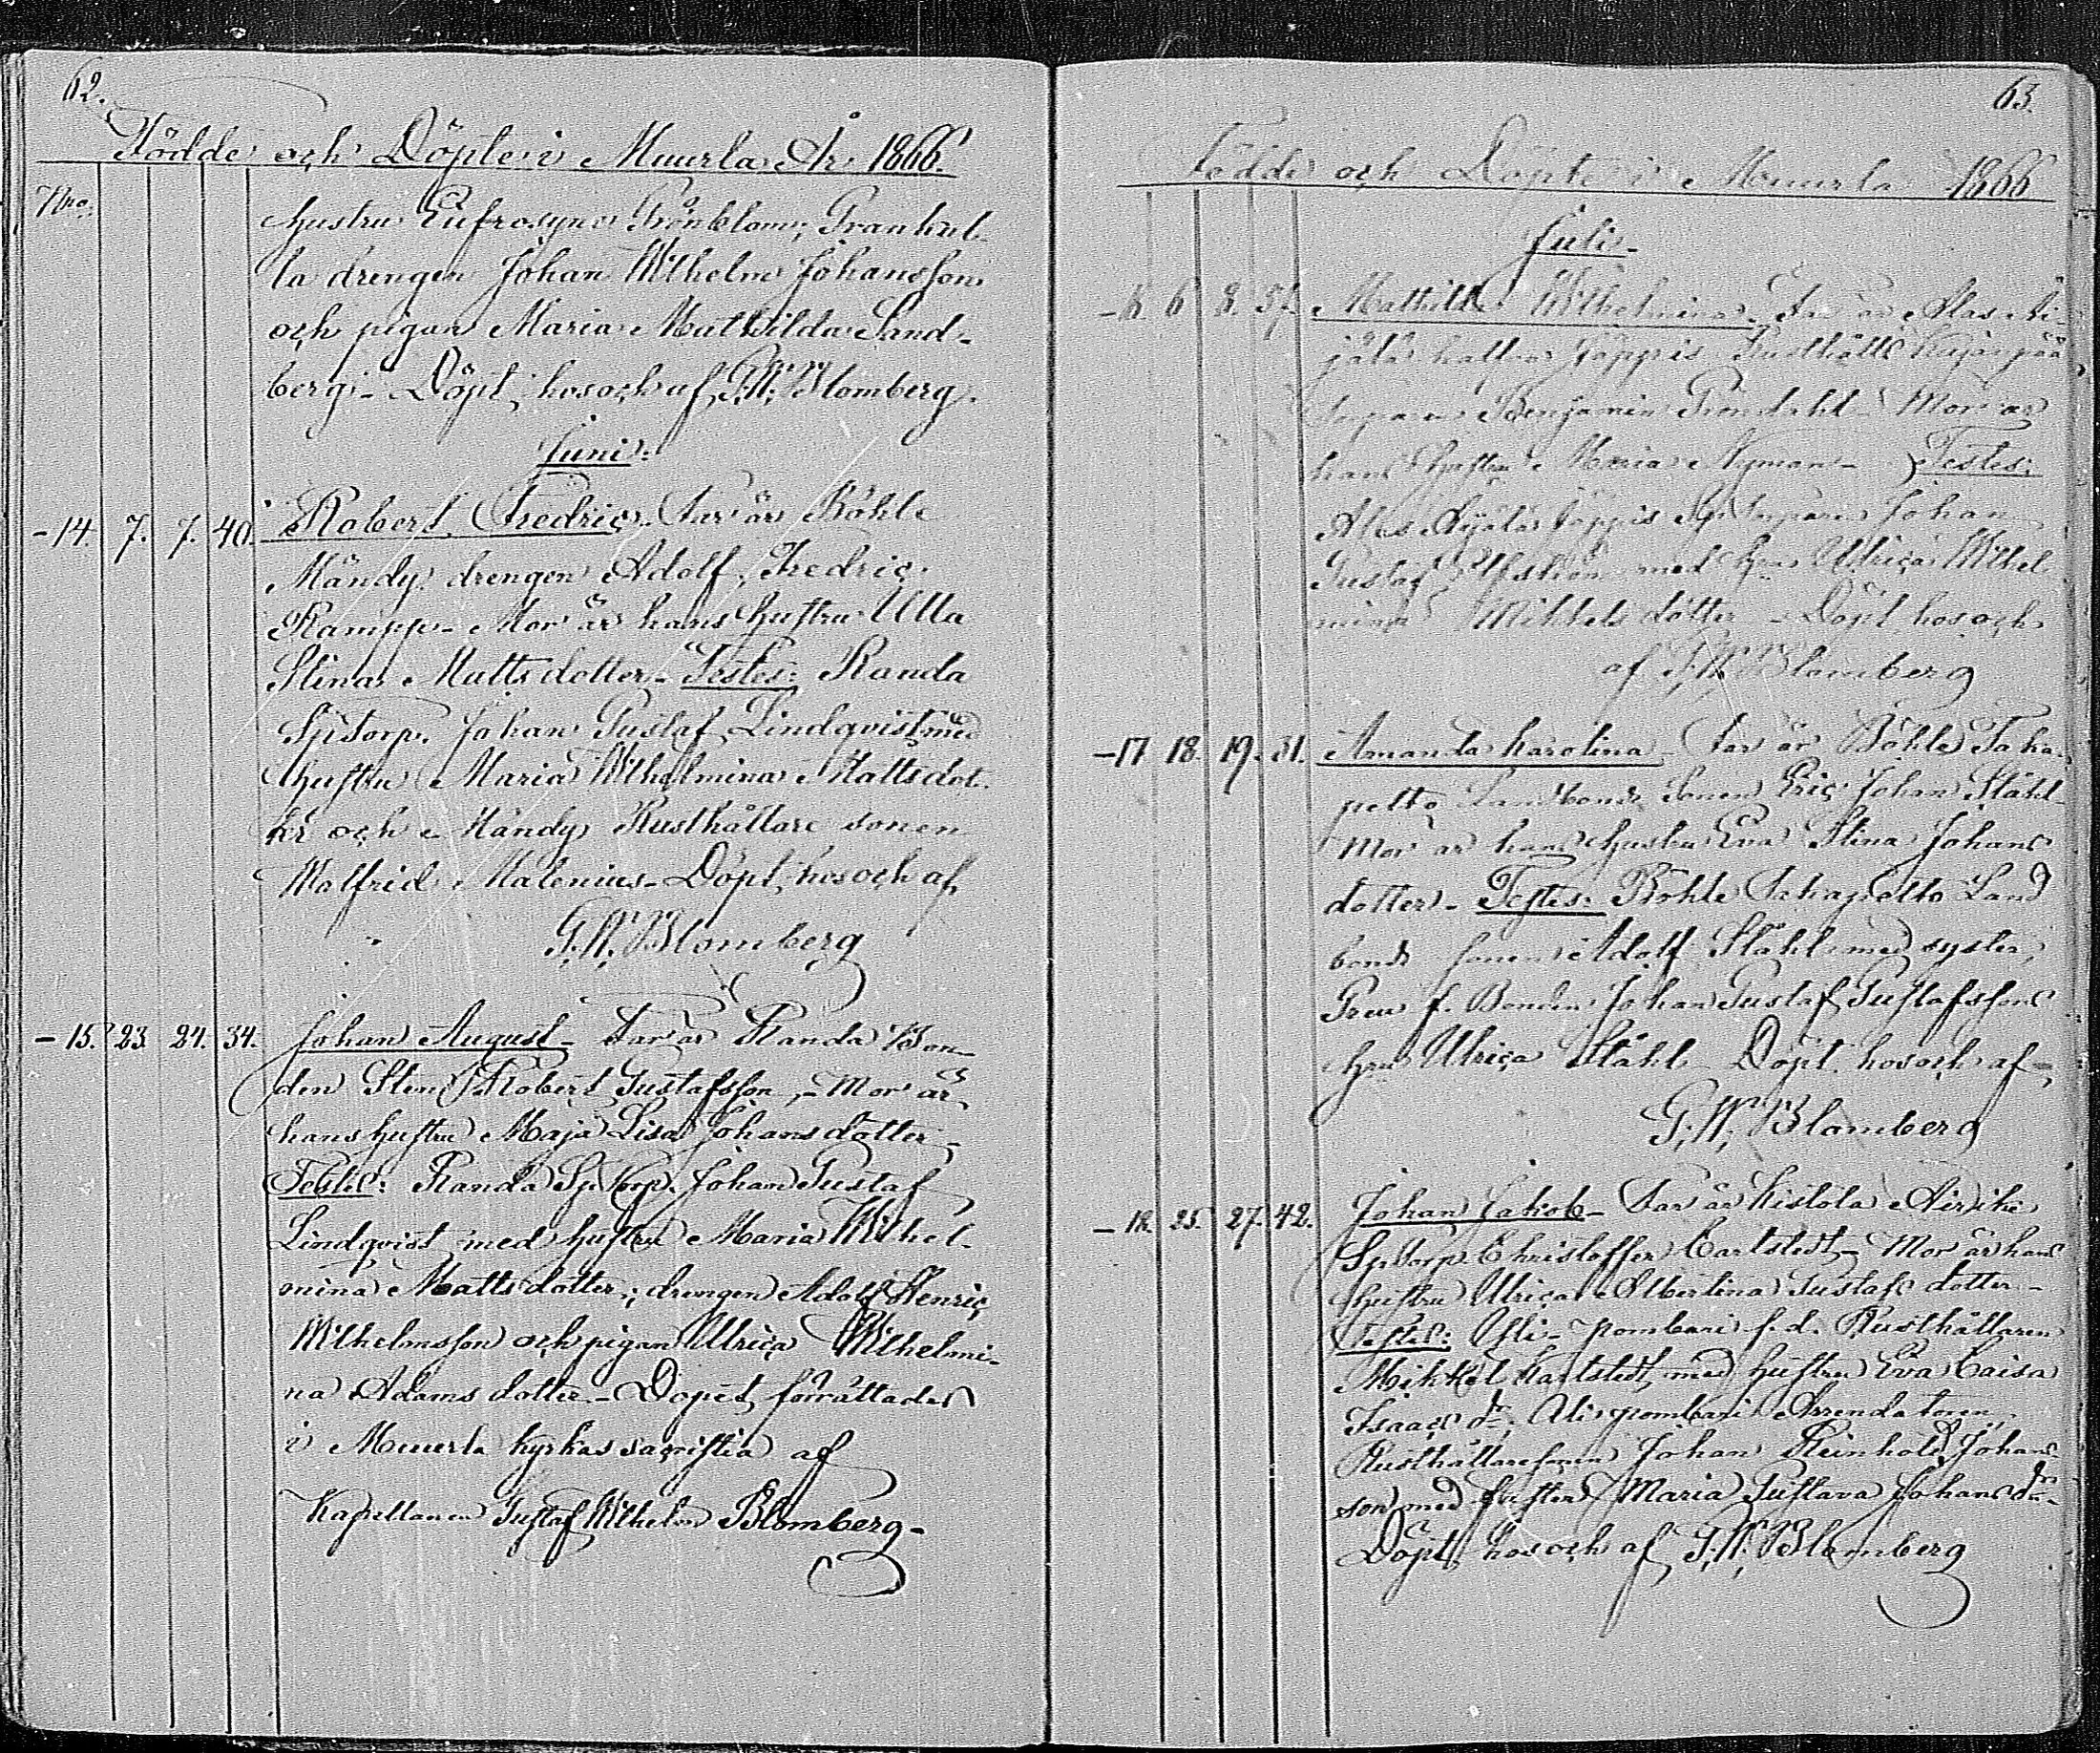 62.
Födde och Döpte i Muurla År 1866.
Nro:
hustru Eufrosyne Grönblom; Grankul-
la drengen Johan Wilhelm Johansson
och pigan Maria Mathilda Sand-
berg. - Döpt hos och af G. W. Blomberg.
Juni:
-14. 7. 7. 40. Robert Fredric. Far är Böhle
Mändy drengen Adolf Fredric
Rampp - Mor är hans hustru Ulla
Stina Mattsdotter - Testes: Randa
Sptorp. Johan Gustaf Lindqvist med
hustru Maria Wilhelmina Mattsdot.
ter och Mändy Rusthållare sonen
Walfrid Malenius - Döpt hos och af
G. W. Blomberg
-15. 23. 24. 34. Johan August - Far är Randa Bon-
den Sten Robert Gustafsson, - Mor är
hans hustru Maja Lisa Johansdotter -
Testes: Randa Sp. torp. Johan Gustaf
Lindqvist med hustru Maria Wilhel-
mina Mattsdotter; drengen Adolf Henric
Wilhelmsson och pigan Ulrica Wilhelmi-
na Adamsdotter - Dopet förrättades
i Muurla kyrkas sacristia af
Kapellanen Gustaf Wilhelm Blomberg -
63.
Födde och Döpte i Muurla 1866
Juli -
6 8. 37. Mathilda Wilhelmina - Far är
jälä Jäppis Rusthålls
Benjamin Gröndahl - Mor är
hans hustru Maria Nyman - Testes:
Äijälä Jäppis Johan
Gustaf med hru Ulrica Wilhel
mina Mikkelsdotter - Döpt hos och
af G. W. Blomberg
-17 18. 19. 31. Amanda Karolina - Far är Böhle Taka
pelto Landbonde Sonen Eric Johan Ståhl
Mor är hans hustru Eva Stina Johans
dotter - Testes: Böhle Takapelto Land
bonde sonen Adolf Ståhl med syster,
f. Bonden Johan Gustaf Gustafssons
hru Ulrica Ståhl Döpt hos och af -
G. W. Blomberg
-18. 25. 27. 42. Johan Jakob - Far är Kistola
Sptorp. Christoffer Carlstedt - Mor är hans
hustru Ulrica Albertina Gustafs dotter -
Testes: Yli-pombari f. d. Rusthållaren
Mikkel Karlstedt, med hustru Eva Caisa
Isaacs dr; Alipombari Arrendatoren
Rusthållaresonen Johan Reinhold Johans-
son med hustru Maria Gustava Johans dr -
Döpt hos och af G. W. Blomberg